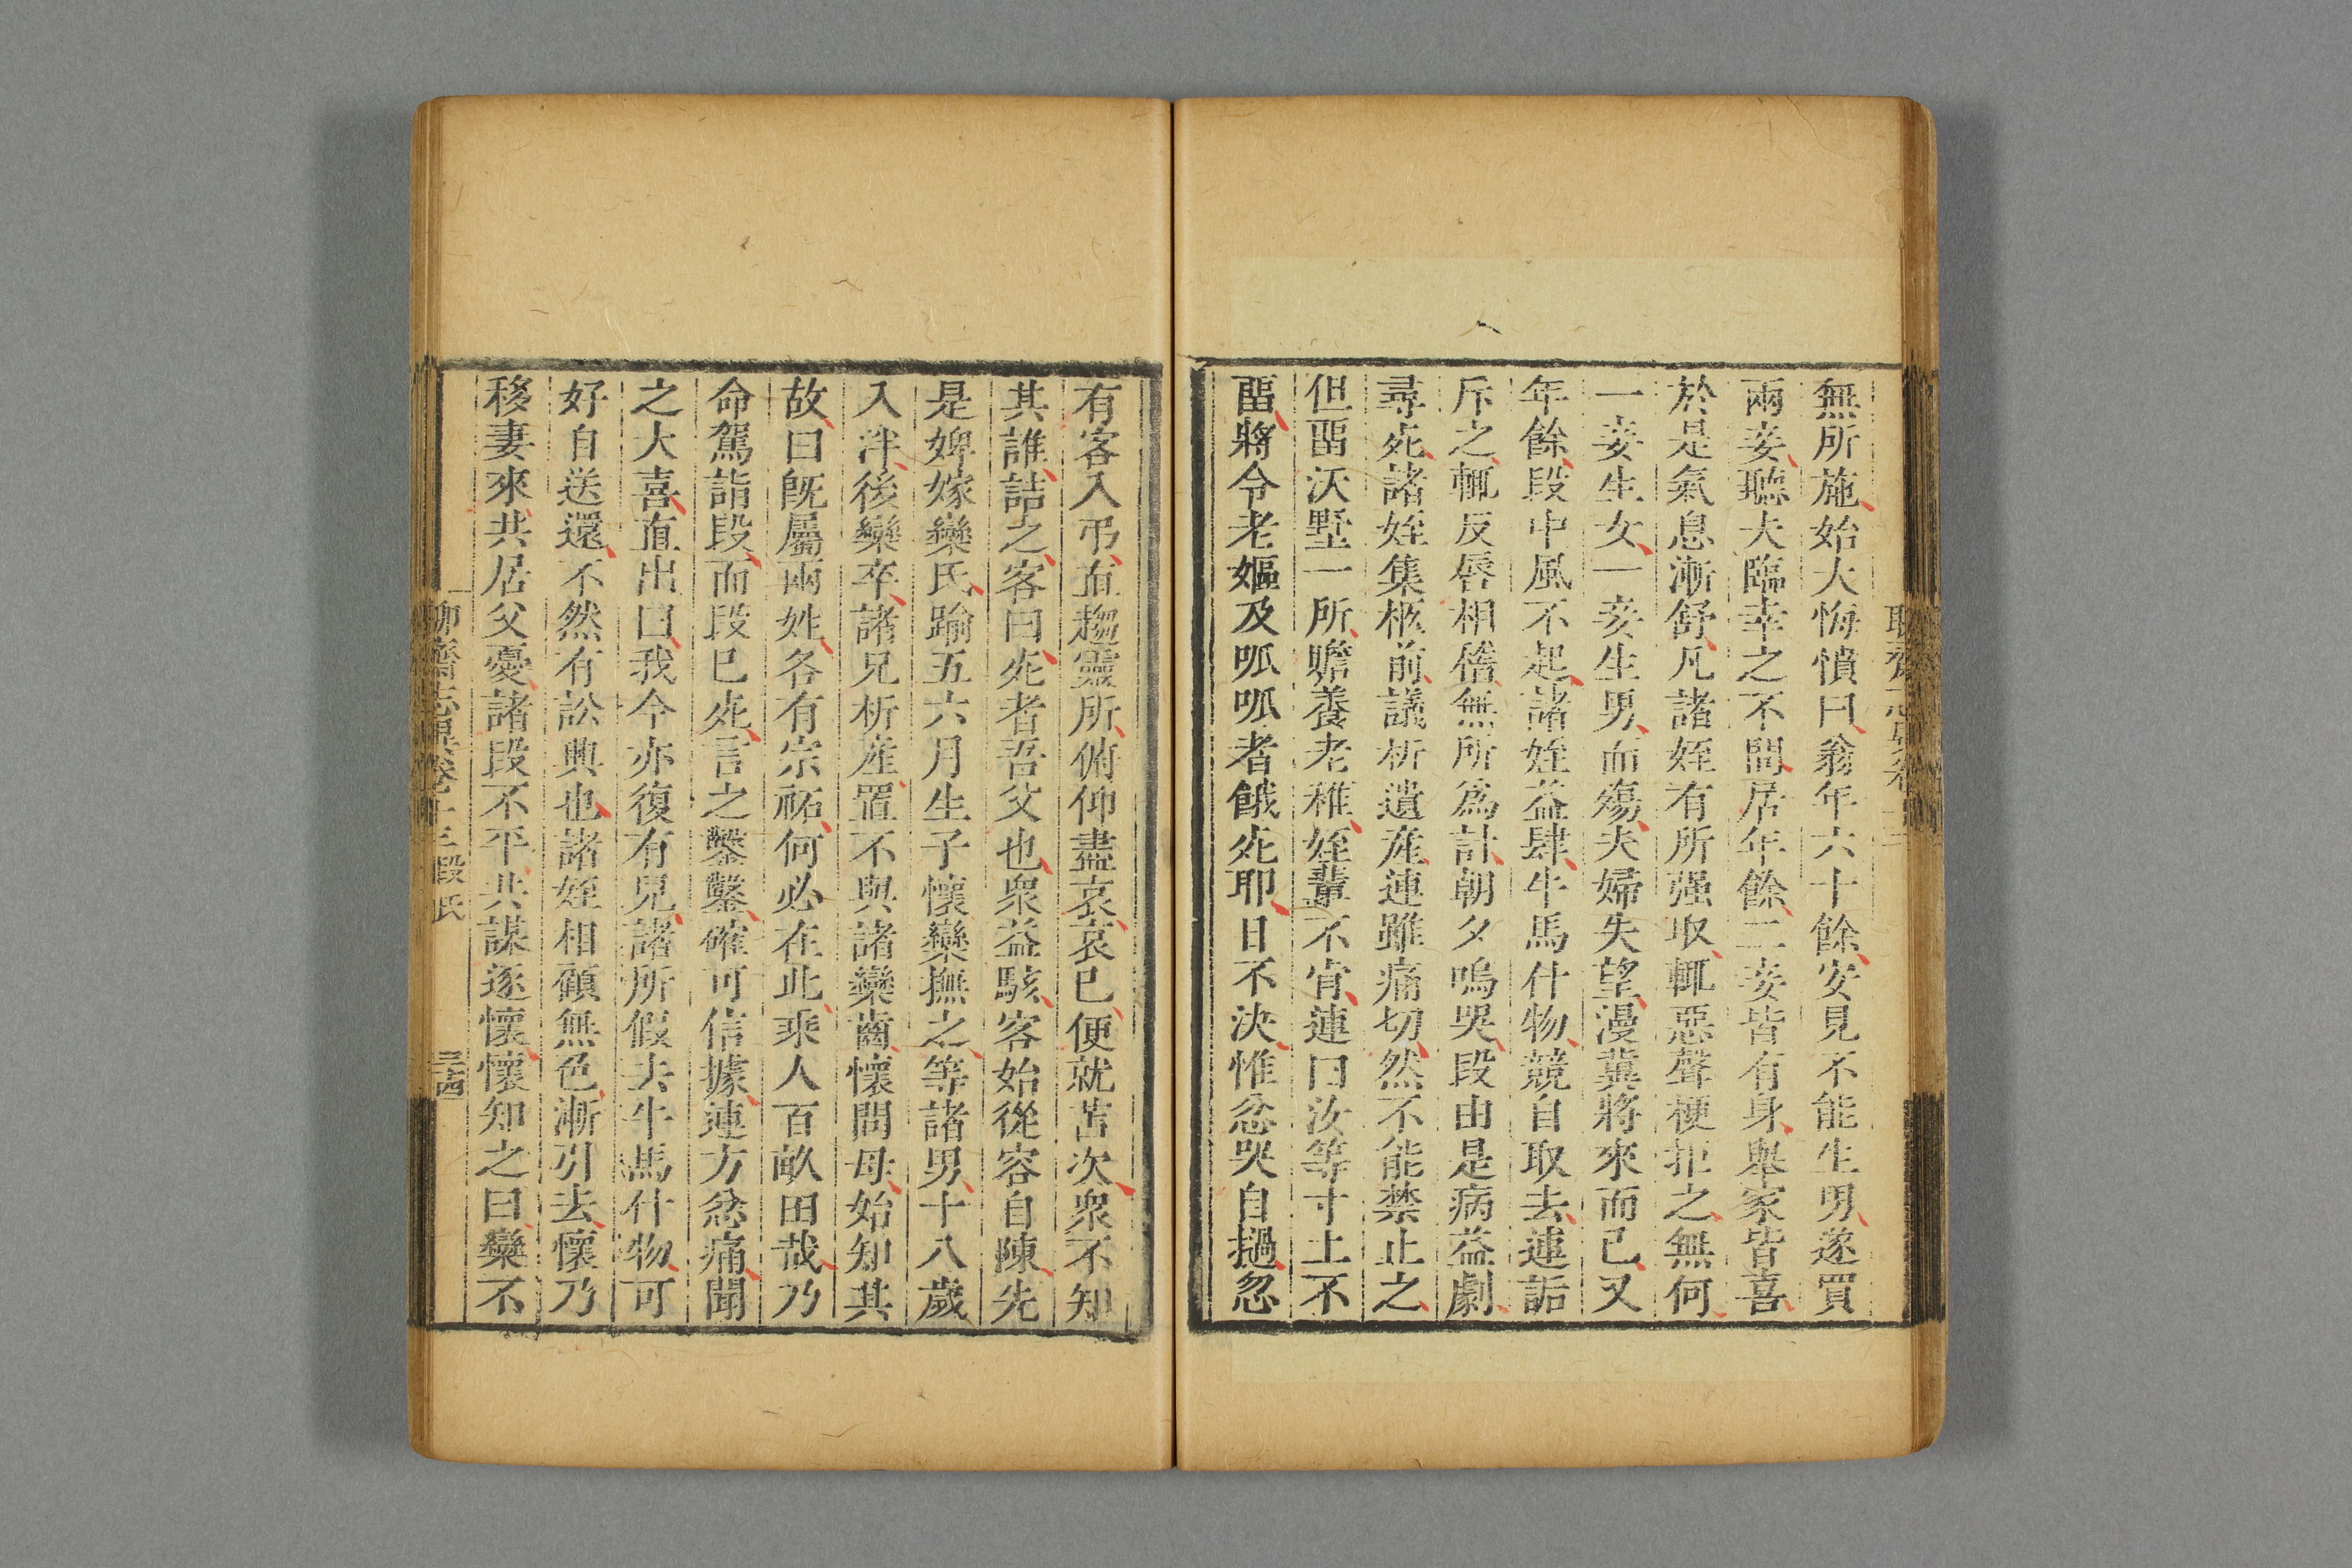 聊齋志異卷十三
無所施始大悔憤曰翁年六十餘安見不能生男遂買
兩妾聽夫臨幸之不問居年餘二妾皆有身舉家皆喜
於是氣息漸舒凡諸姪有所强取輒惡聲梗拒之無何
一妾生女一妾生男而殤夫婦失望漫冀將來而已又
年餘段中風不起諸姪益肆牛馬什物競自取去連詬
斥之輒反唇相稽無所爲計朝夕嗚哭段由是病益劇
尋死諸姪集柩前議析遺産連雖痛切然不能禁止之
但畱沃墅一所贍養老稚姪輩不肯連曰汝等寸土不
畱將令老嫗及呱呱者餓死耶日不決惟忿哭自撾忽
有客入弔直趨靈所俯仰盡哀哀已便就苫次衆不知
其誰詰之客曰死者吾父也衆益駭客始從容自陳先
是婢嫁欒氏踰五六月生子懷欒撫之等諸男十八歲
入泮後欒卒諸兄析産置不與諸欒齒懷問母始知其
故曰旣屬兩姓各有宗祏何必在此乘人百畝田哉乃
命駕詣段而段已死言之鑿鑿確可信據連方忿痛聞
之大喜直出曰我今亦復有兒諸所假去牛馬什物可
好自送還不然有訟興也諸姪相顧無色漸引去懷乃
移妻來共居父憂諸段不平共謀逐懷懷知之曰欒不
聊齋志異卷十三 段氏 三十四